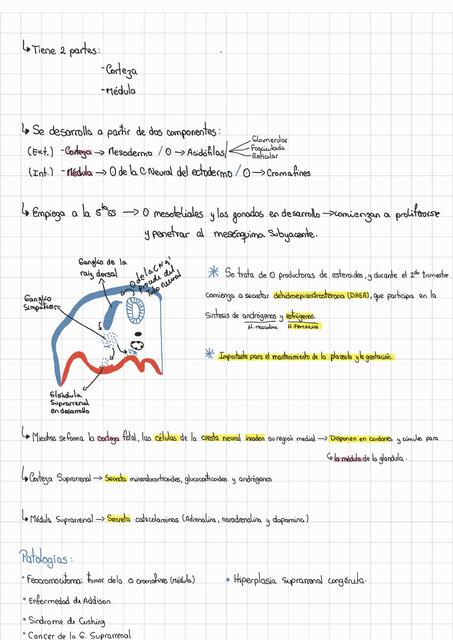 ↳ Tiene 2 partes:
- Corteza
- Médula
↳ Se desarrolla a partir de dos componentes:
(Ext.) - Corteza → Mesodermo / O → Acidófilas
Glomerular
Fasciculada
Reticular
(Int.) - Médula → O de la C Neural del ectodermo / O → Cromafines
↳ Empieza a la 5ta SS → O mesoteliales y las gonadas en desarrollo → comienzan a proliferarse
y penetrar al mesénquima subyacente.
Ganglio de la
raíz dorsal
Ganglio
Simpático
Glándula
Suprarrenal
en desarrollo
* Se trata de O productoras de esteroides, y durante el 2do trimestre
comienza a secretar dehidroepiandrosterona (DHEA), que participa en la
Síntesis de andrógenos y estrógenos.
H. masculina H. femenina
* Importante para el mantenimiento de la placenta y la gestación.
↳ Mientras se forma la corteza fetal, las células de la cresta neural invaden su región medial → Disponen en cordones y cúmulos para
la médula de la glandula.
↳ Corteza Suprarrenal → Secreta mineralocorticoides, glucocorticoides y andrógenos
↳ Médula Suprarrenal → Secreta catecolaminas (Adrenalina, noradrenalina y dopamina)
Patologías:
• Feocromocitoma: tumor de la O cromafines (Médula)
• Hiperplasia Suprarrenal congénita.
• Enfermedad de Addison
• Síndrome de Cushing
• Cancer de la G. Suprarrenal